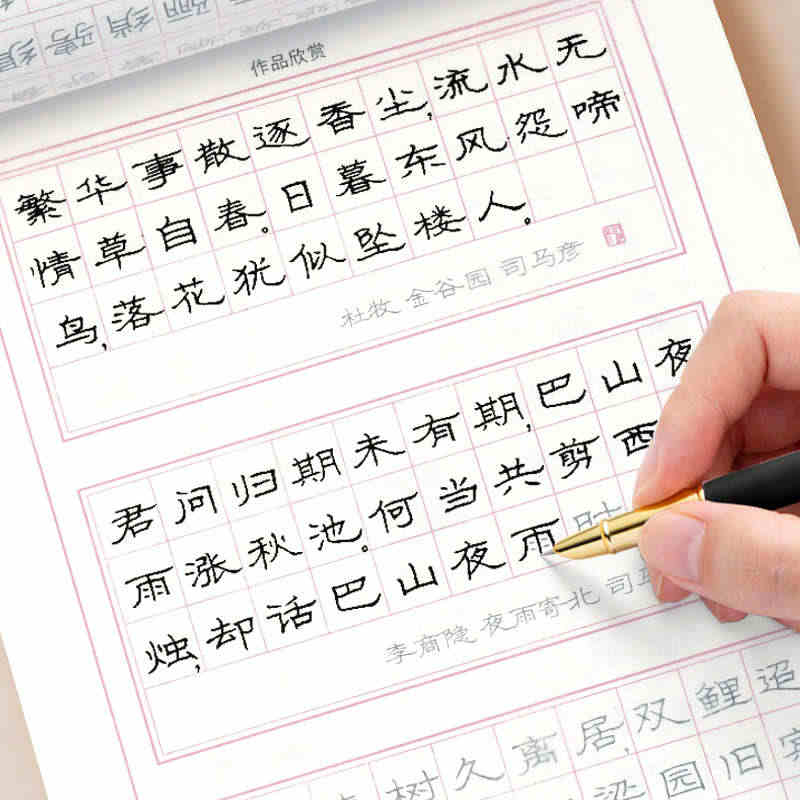 作品欣赏
繁华事散逐香尘,流水无
情草自春。日暮东风怨啼
鸟,落花犹似坠楼人。
杜牧 金谷园 司马彦
君问归期未有期,巴山夜
雨涨秋池。何当共剪西
烛,却话巴山夜雨
李商隐 夜雨寄北 司
树久离居,双鲤迢
梁园旧宾